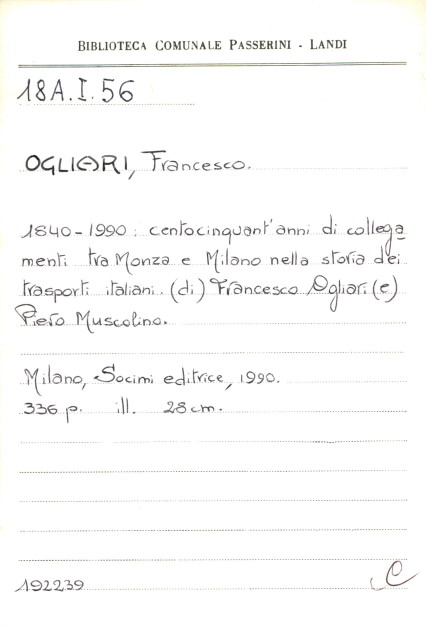 BIBLIOTECA COMUNALE PASSERINI - LANDI
18A.I.56
OGLIARI, Francesco.
1840-1990: centocinquant'anni di collega
menti tra Monza e Milano nella storia dei
trasporti italiani. (di) Francesco Ogliari (e)
Piero Muscolino.
Milano, Socimi editrice, 1990.
336 p. ill. 28 cm.
192239
C